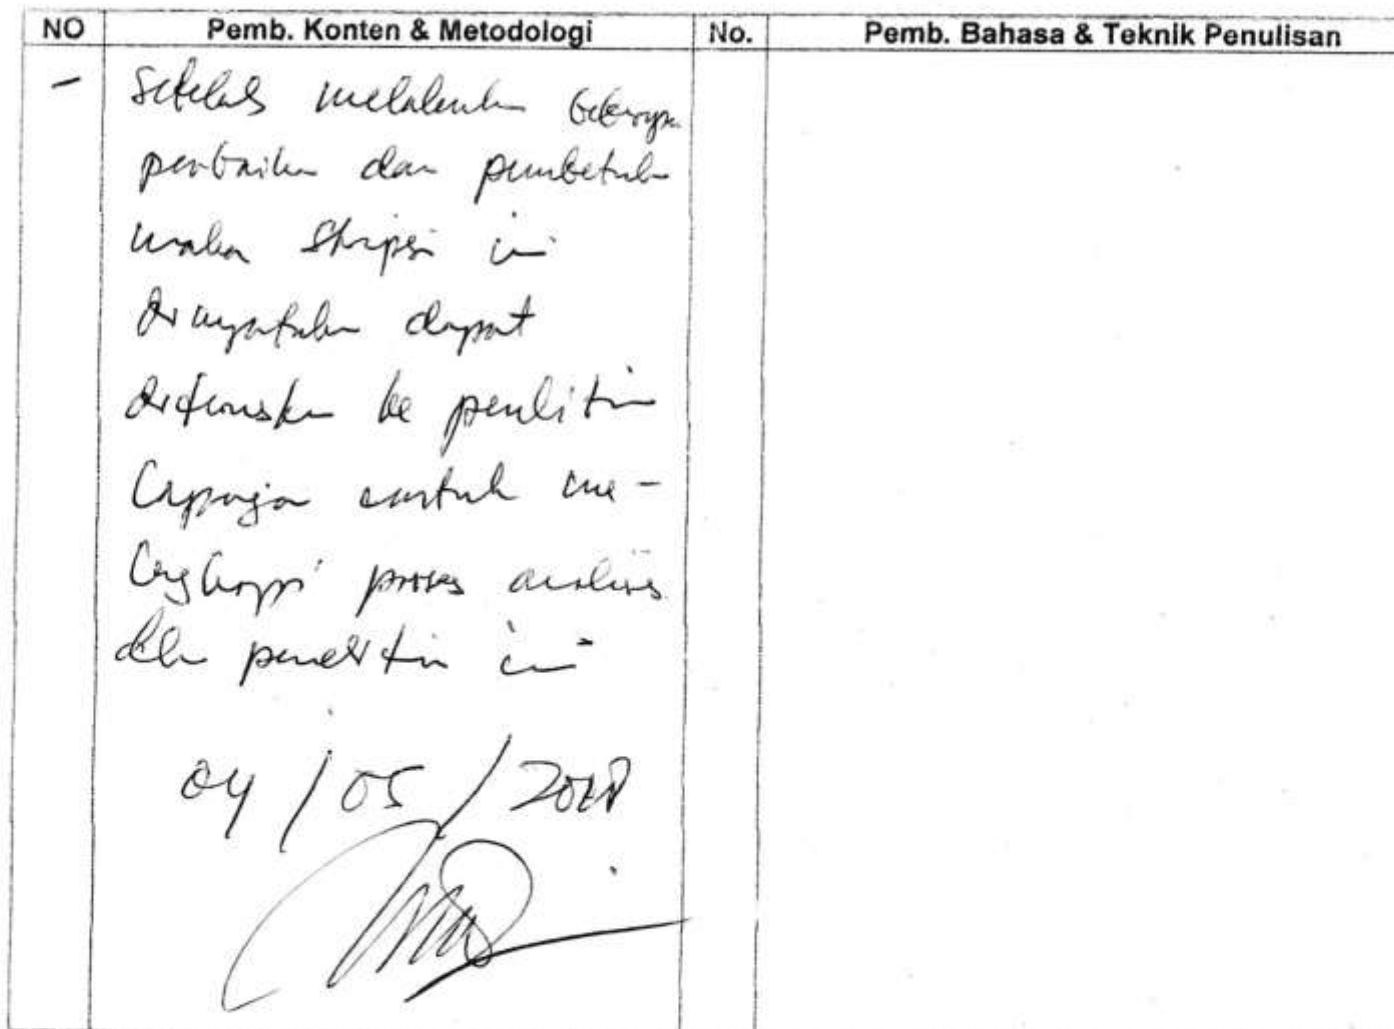 NO Pemb. Konten & Metodologi No. Pemb. Bahasa & Teknik Penulisan
- Setelah melakukan beberapa
perbaikan dan pembetulan
maka skripsi ini
dinyatakan dapat
diteruskan ke penelitian
lapangan untuk me-
lengkapi proses analisis
dlm penelitian ini
04/05/2018